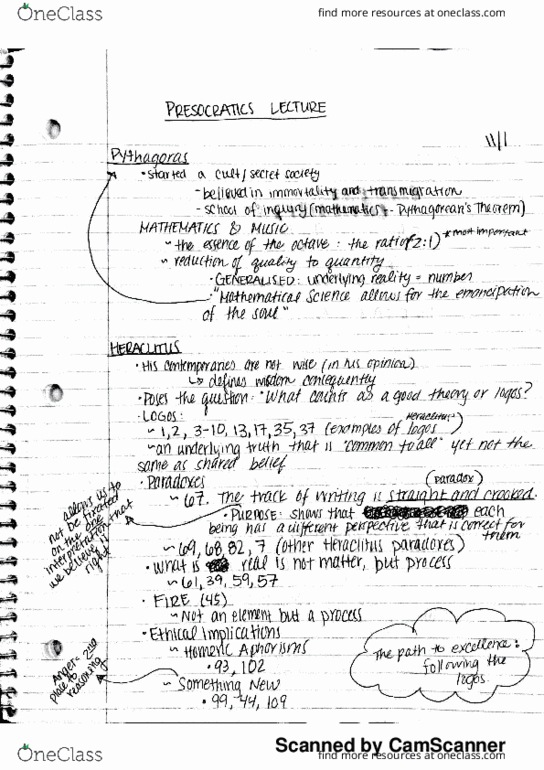 OneClass
find more resources at oneclass.com
PRESOCRATICS LECTURE
11/1
Pythagoras
• started a cult/secret society
- believed in immortality and transmigration
- school of inquiry (mathematics - Pythagorean's Theorem)
MATHEMATICS & MUSIC
~ the essence of the octave : the ratio (2:1) * most important
~ reduction of quality to quantity
• GENERALISED: underlying reality = number
"Mathematical Science allows for the emancipation
of the soul"
HERACLITUS
• His contemporaries are not wise (in his opinion)
↳ defines wisdom consequently
• Poses the question: "What counts as a good theory or logos?
• LOGOS:
~ 1, 2, 3-10, 13, 17, 35, 37 (examples of Heraclitus' logos)
~ an underlying truth that is "common to all" yet not the
same as shared belief
• Paradoxes
(paradox)
~ 67. The track of writing is straight and crooked.
• PURPOSE: shows that each
being has a different perspective that is correct for
them
allows us to
not be fixated
on the one
interpretation that
we believe is
right
~ 69, 68, 82, 7 (other Heraclitus paradoxes)
• What is real is not matter, but process
~ 61, 39, 59, 57
• FIRE (45)
~ Not an element but a process
• Ethical Implications
~ Homeric Aphorisms
• 93, 102
~ Something New
• 99, 44, 109
Anger = 2nd
place to
reasoning
The path to excellence:
following the
logos.
Scanned by CamScanner
OneClass
find more resources at oneclass.com